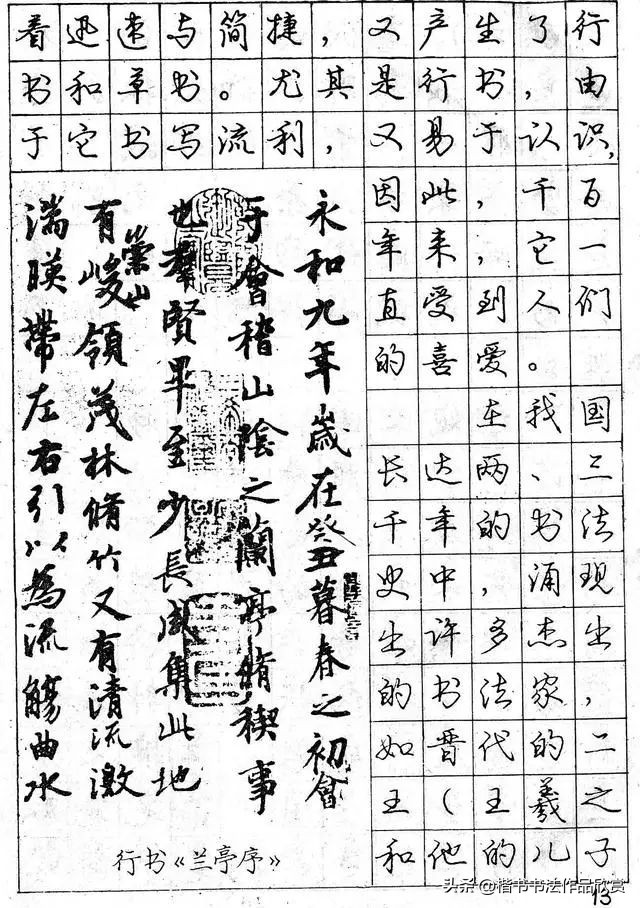 着迅速与简捷，又产生了行
书和草书。尤其是行书，由
于它书写流利，又易于认识，
因此，千百
年来，它一
直受到人们
的喜爱。
在我国
长达两、三
千年的书法
史中，涌现
出许多杰出
的书法家，
如晋代的二
王（王羲之
和他的儿子
永和九年歲在癸丑暮春之初會
于會稽山陰之蘭亭脩禊事
也羣賢畢至少長咸集此地
有崇山峻領茂林脩竹又有清流激
湍暎帶左右引以為流觴曲水
行书《兰亭序》
头条@楷书书法作品欣赏
13